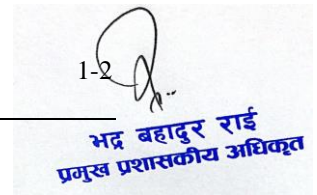 1-2
भद्र बहादुर राई
प्रमुख प्रशासकीय अधिकृत